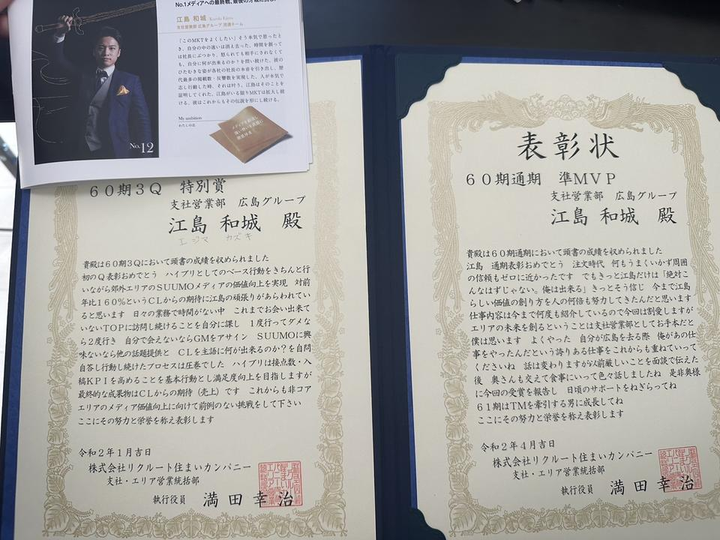 No.1メディアへの最終戦、最後の
江島 和城
「このMKTをよくしたい」そう本気で思ったと
My ambition
No.12
60期3Q 特別賞
支社営業部 広島グループ
江島 和城 殿
エジマ カズキ
貴殿は60期3Qにおいて頭書の成績を収められました
初のQ表彰おめでとう ハイブリとしてのベース行動をきちんと行
いながら郊外エリアのSUUMOメディアの価値向上を実現 対前
年比160%というCLからの期待に江島の頑張りがあらわれてい
ると思います 日々の業務で時間がない中 これまでお会い出来て
いないTOPに訪問し続けることを自分に課し 1度行ってダメな
ら2度行き 自分で会えないならGMをアサイン SUUMOに興
味ないなら他の話題提供と CLを主語に何が出来るのか?を自問
自答し行動し続けたプロセスは圧巻でした ハイブリは接点数・入
稿KPIを高めることを基本行動とし満足度向上を目指しますが
最終的な成果物はCLからの期待(売上)です これからも非コア
エリアのメディア価値向上に向けて前例のない挑戦をして下さい
ここにその努力と栄誉を称え表彰します
令和2年1月吉日
株式会社リクルート住まいカンパニー
支社・エリア営業統括部
執行役員 満田幸治
表彰状
60期通期 準MVP
支社営業部 広島グループ
江島 和城 殿
貴殿は60期通期において頭書の成績を収められました
江島 通期表彰おめでとう 注文時代 何もうまくいかず周囲
の信頼もゼロに近かったです でもきっと江島だけは「絶対こ
んなはずじゃない。俺は出来る」きっとそう信じ 今まで江島
らしい価値の創り方を人の何倍も努力してきたんだと思います
仕事内容は今まで何度も紹介しているので今回は割愛しますが
エリアの未来を創るということは支社営業部としてお手本だと
僕は思います よくやった 自分が広島を去る際 俺があの仕
事をやったんだという誇りある仕事をこれからも重ねていって
くださいね 話は変わりますが以前厳しいことを面談で伝えた
後 奥さんも交えて食事にいって色々話しましたね 是非奥様
に今回の受賞を報告し 日頃のサポートをねぎらってね
61期はTMを牽引する男に成長してね
ここにその努力と栄誉を称え表彰します
令和2年4月吉日
株式会社リクルート住まいカンパニー
支社・エリア営業統括部
執行役員 満田幸治